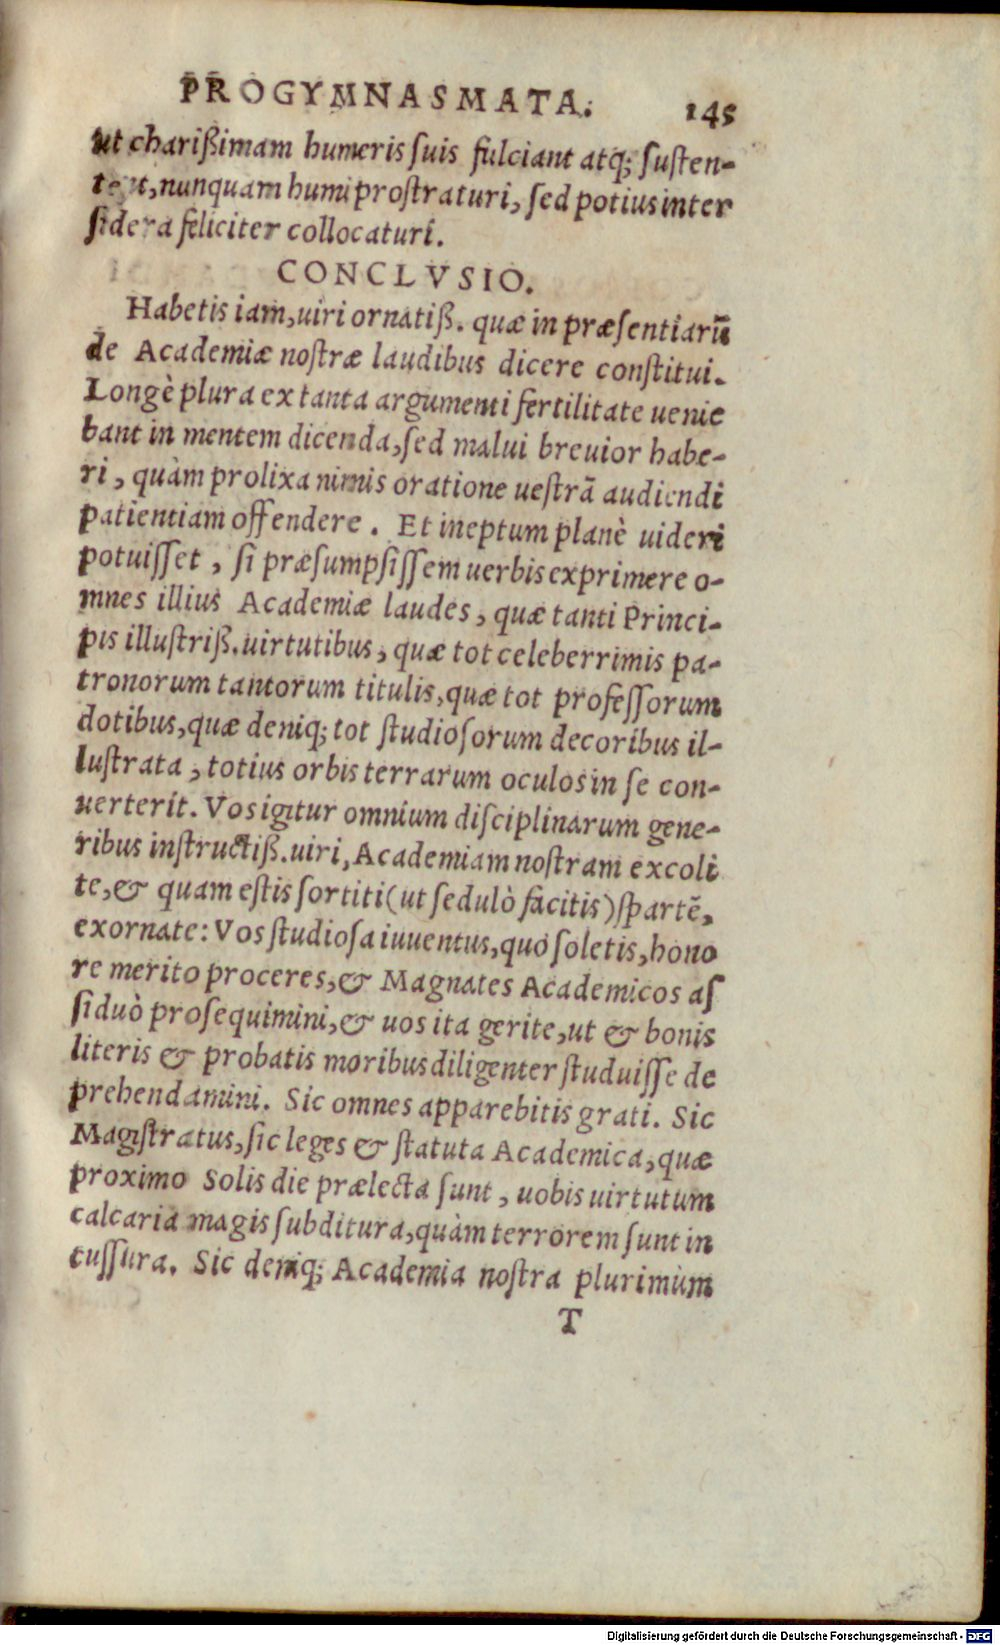 PROGYMNASMATA. 145
ut charißimam humeris suis fulciant atq; susten-
tent, nunquam humi prostraturi, sed potius inter
sidera feliciter collocaturi.
CONCLVSIO.
Habetis iam, uiri ornatiß. quæ in præsentiarũ
de Academiæ nostræ laudibus dicere constitui.
Longè plura ex tanta argumenti fertilitate uenie
bant in mentem dicenda, sed malui breuior habe-
ri, quàm prolixa nimis oratione uestrã audiendi
patientiam offendere. Et ineptum planè uideri
potuisset, si præsumpsissem uerbis exprimere o-
mnes illius Academiæ laudes, quæ tanti Princi-
pis illustriß. uirtutibus, quæ tot celeberrimis pa-
tronorum tantorum titulis, quæ tot professorum
dotibus, quæ deniq; tot studiosorum decoribus il-
lustrata, totius orbis terrarum oculos in se con-
uerterit. Vos igitur omnium disciplinarum gene-
ribus instructiß. uiri, Academiam nostram excoli
te, & quam estis sortiti (ut sedulò facitis) spartẽ,
exornate: Vos studiosa iuuentus, quo soletis, hono
re merito proceres, & Magnates Academicos as
siduò prosequimini, & uos ita gerite, ut & bonis
literis & probatis moribus diligenter studuisse de
prehendamini. Sic omnes apparebitis grati. Sic
Magistratus, sic leges & statuta Academica, quæ
proximo Solis die prælecta sunt, uobis uirtutum
calcaria magis subditura, quàm terrorem sunt in
cussura. Sic deniq; Academia nostra plurimùm
T
Digitalisierung gefördert durch die Deutsche Forschungsgemeinschaft - DFG